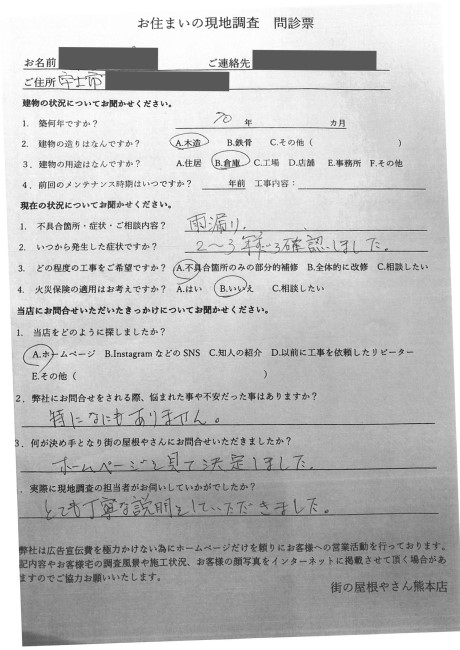 お住まいの現地調査　問診票
お名前　　　　　　　　　　ご連絡先
ご住所 宇土市
建物の状況についてお聞かせください。
1. 築何年ですか？　70 年　　　カ月
2. 建物の造りはなんですか？　A.木造　B.鉄骨　C.その他（　　　　　　）
3. 建物の用途はなんですか？　A.住居　B.倉庫　C.工場　D.店舗　E.事務所　F.その他
4. 前回のメンテナンス時期はいつですか？　　　年前　工事内容：
現在の状況についてお聞かせください。
1. 不具合箇所・症状・ご相談内容？　雨漏り.
2. いつから発生した症状ですか？　2〜3年ごろ確認しました。
3. どの程度の工事をご希望ですか？　A.不具合箇所のみの部分的補修　B.全体的に改修　C.相談したい
4. 火災保険の適用はお考えですか？　A.はい　B.いいえ　C.相談したい
当店にお問合せいただいたきっかけについてお聞かせください。
1. 当店をどのように探しましたか？
A.ホームページ　B.InstagramなどのSNS　C.知人の紹介　D.以前に工事を依頼したリピーター
E.その他（　　　　　　　　　　）
2. 弊社にお問合せをされる際、悩まれた事や不安だった事はありますか？
特になにもありません。
3. 何が決め手となり街の屋根やさんにお問合せいただきましたか？
ホームページを見て決定しました。
. 実際に現地調査の担当者がお伺いしていかがでしたか？
とても丁寧な説明をしていただきました。
弊社は広告宣伝費を極力かけない為にホームページだけを頼りにお客様への営業活動を行っております。
記内容やお客様宅の調査風景や施工状況、お客様の顔写真をインターネットに掲載させて頂く場合があ
ますのでご協力お願いいたします。
街の屋根やさん熊本店